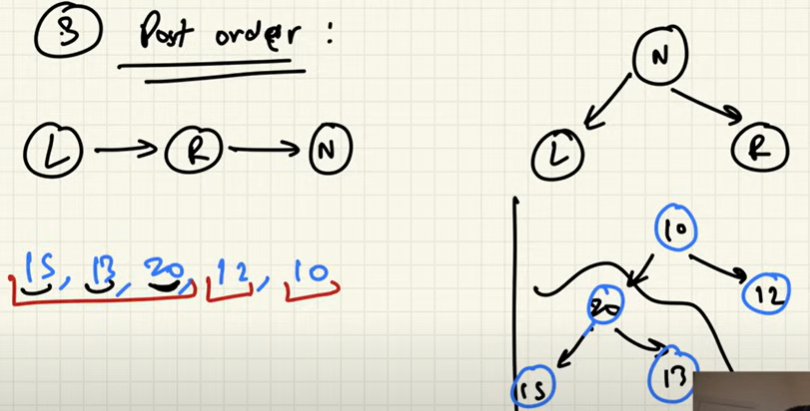 3 Post order :
N
L → R → N
L R
15, 13, 20, 12, 10
10
12
20
15 13